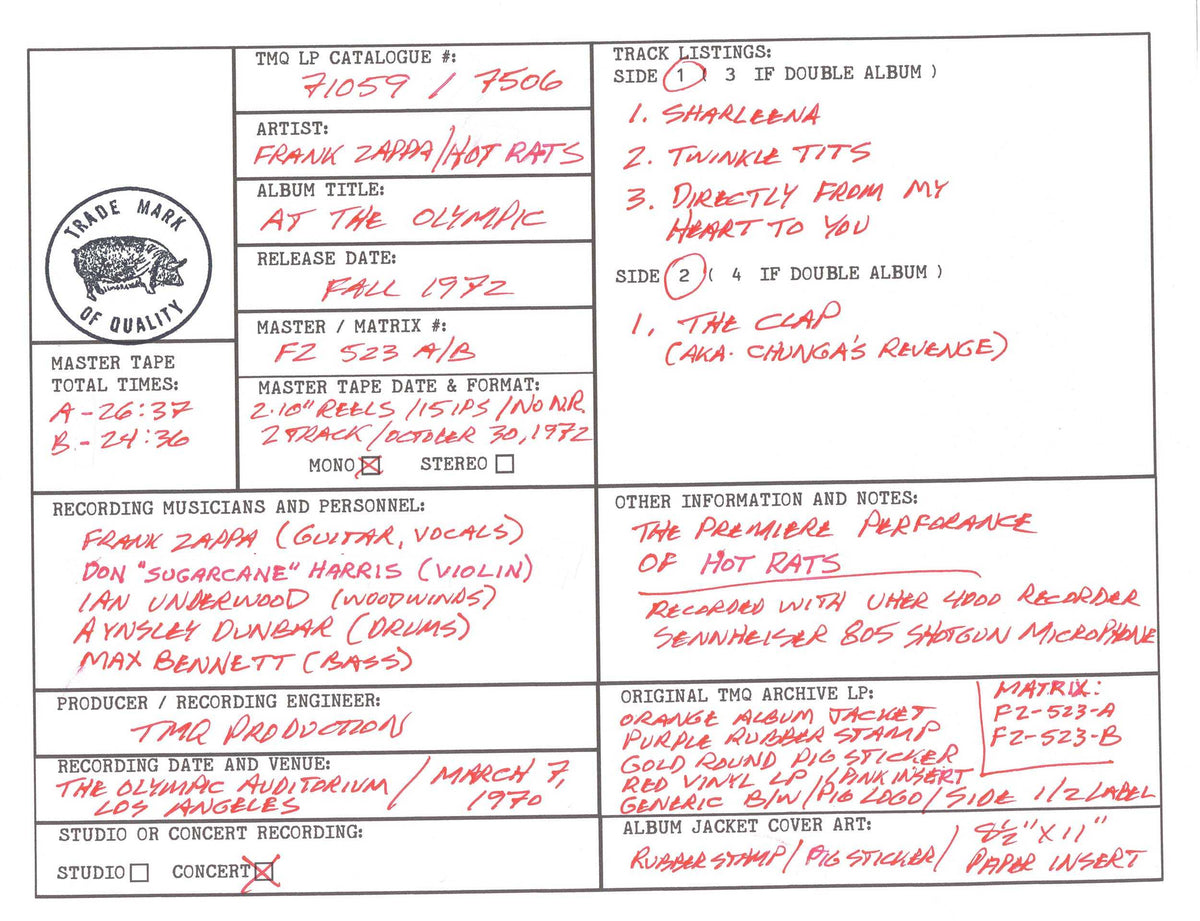 TRADE MARK
OF QUALITY
MASTER TAPE
TOTAL TIMES:
A - 26:37
B. - 24:36
TMQ LP CATALOGUE #:
71059 / 7506
ARTIST:
FRANK ZAPPA/HOT RATS
ALBUM TITLE:
AT THE OLYMPIC
RELEASE DATE:
FALL 1972
MASTER / MATRIX #:
FZ 523 A/B
MASTER TAPE DATE & FORMAT:
2-10" REELS /15 IPS /NO N.R.
2 TRACK/OCTOBER 30, 1972
MONO STEREO
TRACK LISTINGS:
SIDE 1 ( 3 IF DOUBLE ALBUM )
1. SHARLEENA
2. TWINKLE TITS
3. DIRECTLY FROM MY
HEART TO YOU
SIDE 2 ( 4 IF DOUBLE ALBUM )
1. THE CLAP
(AKA. CHUNGA'S REVENGE)
RECORDING MUSICIANS AND PERSONNEL:
FRANK ZAPPA (GUITAR, VOCALS)
DON "SUGARCANE" HARRIS (VIOLIN)
IAN UNDERWOOD (WOODWINDS)
AYNSLEY DUNBAR (DRUMS)
MAX BENNETT (BASS)
PRODUCER / RECORDING ENGINEER:
TMQ PRODUCTION
RECORDING DATE AND VENUE:
THE OLYMPIC AUDITORIUM / MARCH 7,
LOS ANGELES 1970
STUDIO OR CONCERT RECORDING:
STUDIO CONCERT
OTHER INFORMATION AND NOTES:
THE PREMIERE PERFORANCE
OF HOT RATS
RECORDED WITH UHER 4000 RECORDER
SENNHEISER 805 SHOTGUN MICROPHONE
ORIGINAL TMQ ARCHIVE LP:
ORANGE ALBUM JACKET
PURPLE RUBBER STAMP
GOLD ROUND PIG STICKER
RED VINYL LP / PINK INSERT
GENERIC B/W/PIG LOGO/SIDE 1/2 LABEL
MATRIX:
FZ-523-A
FZ-523-B
ALBUM JACKET COVER ART:
RUBBER STAMP/PIG STICKER/ 8½" X 11"
PAPER INSERT